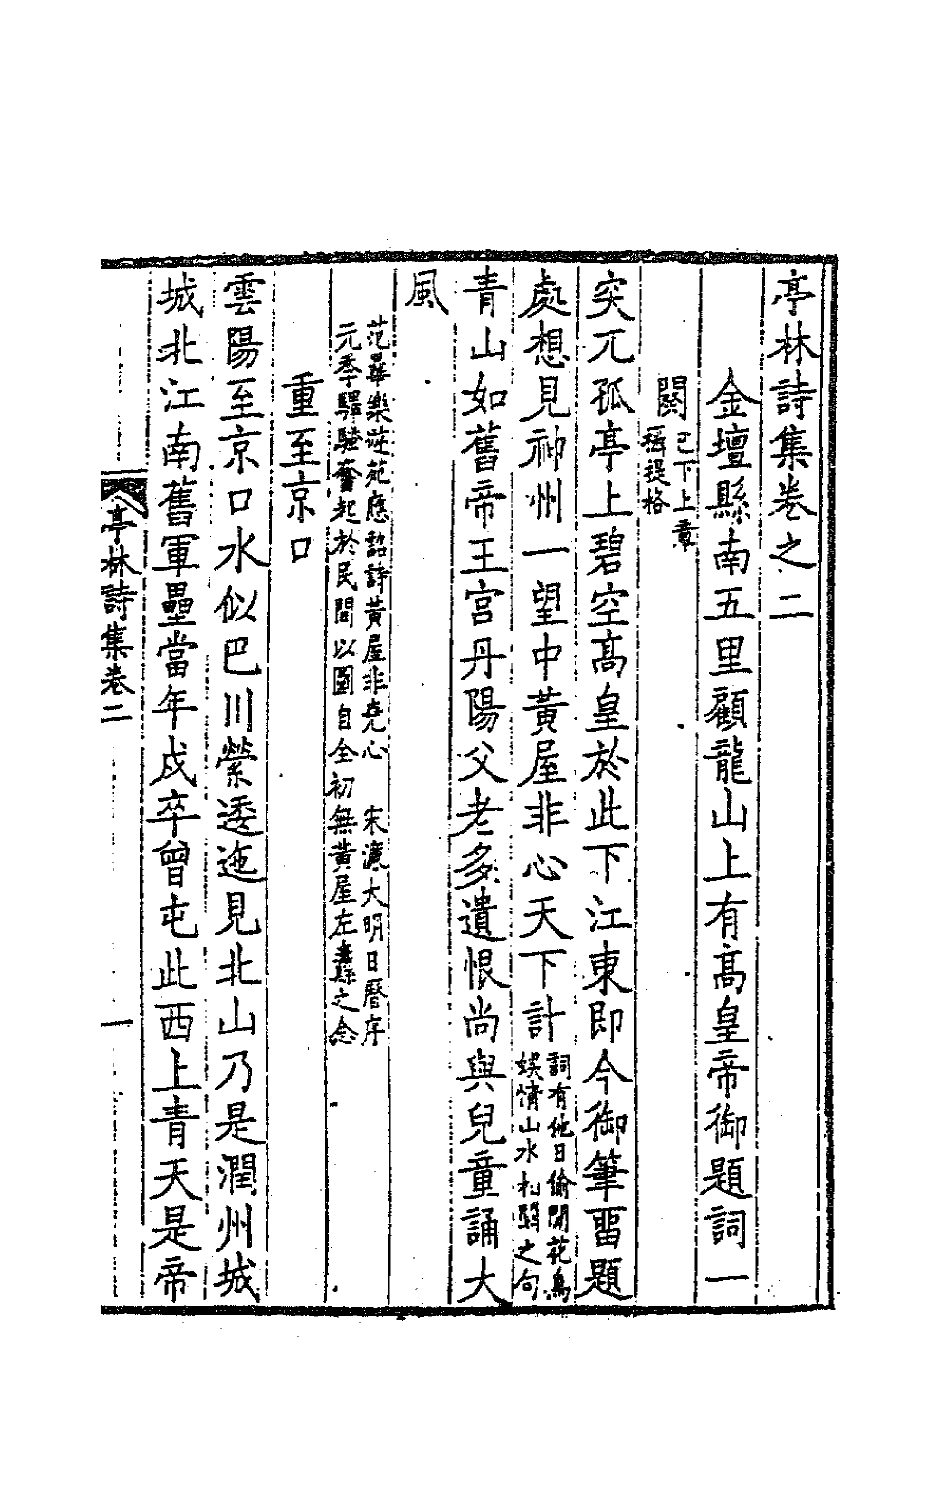 亭林詩集卷之二
金壇縣南五里顧龍山上有高皇帝御題詞一
闋已下上章
攝提格
突兀孤亭上碧空高皇於此下江東即今御筆畱題
處想見神州一望中黃屋非心天下計詞有他日偷閒花鳥
娛情山水相翳之句
青山如舊帝王宮丹陽父老多遺恨尚與兒童誦大
風
范曄樂遊苑應詔詩黃屋非堯心 宋濂大明日曆序
元季驛騷奮起於民間以圖自全初無黃屋左纛之念
重至京口
雲陽至京口水似巴川縈逶迤見北山乃是潤州城
城北江南舊軍壘當年戍卒曾屯此西上青天是帝
亭林詩集卷二
一